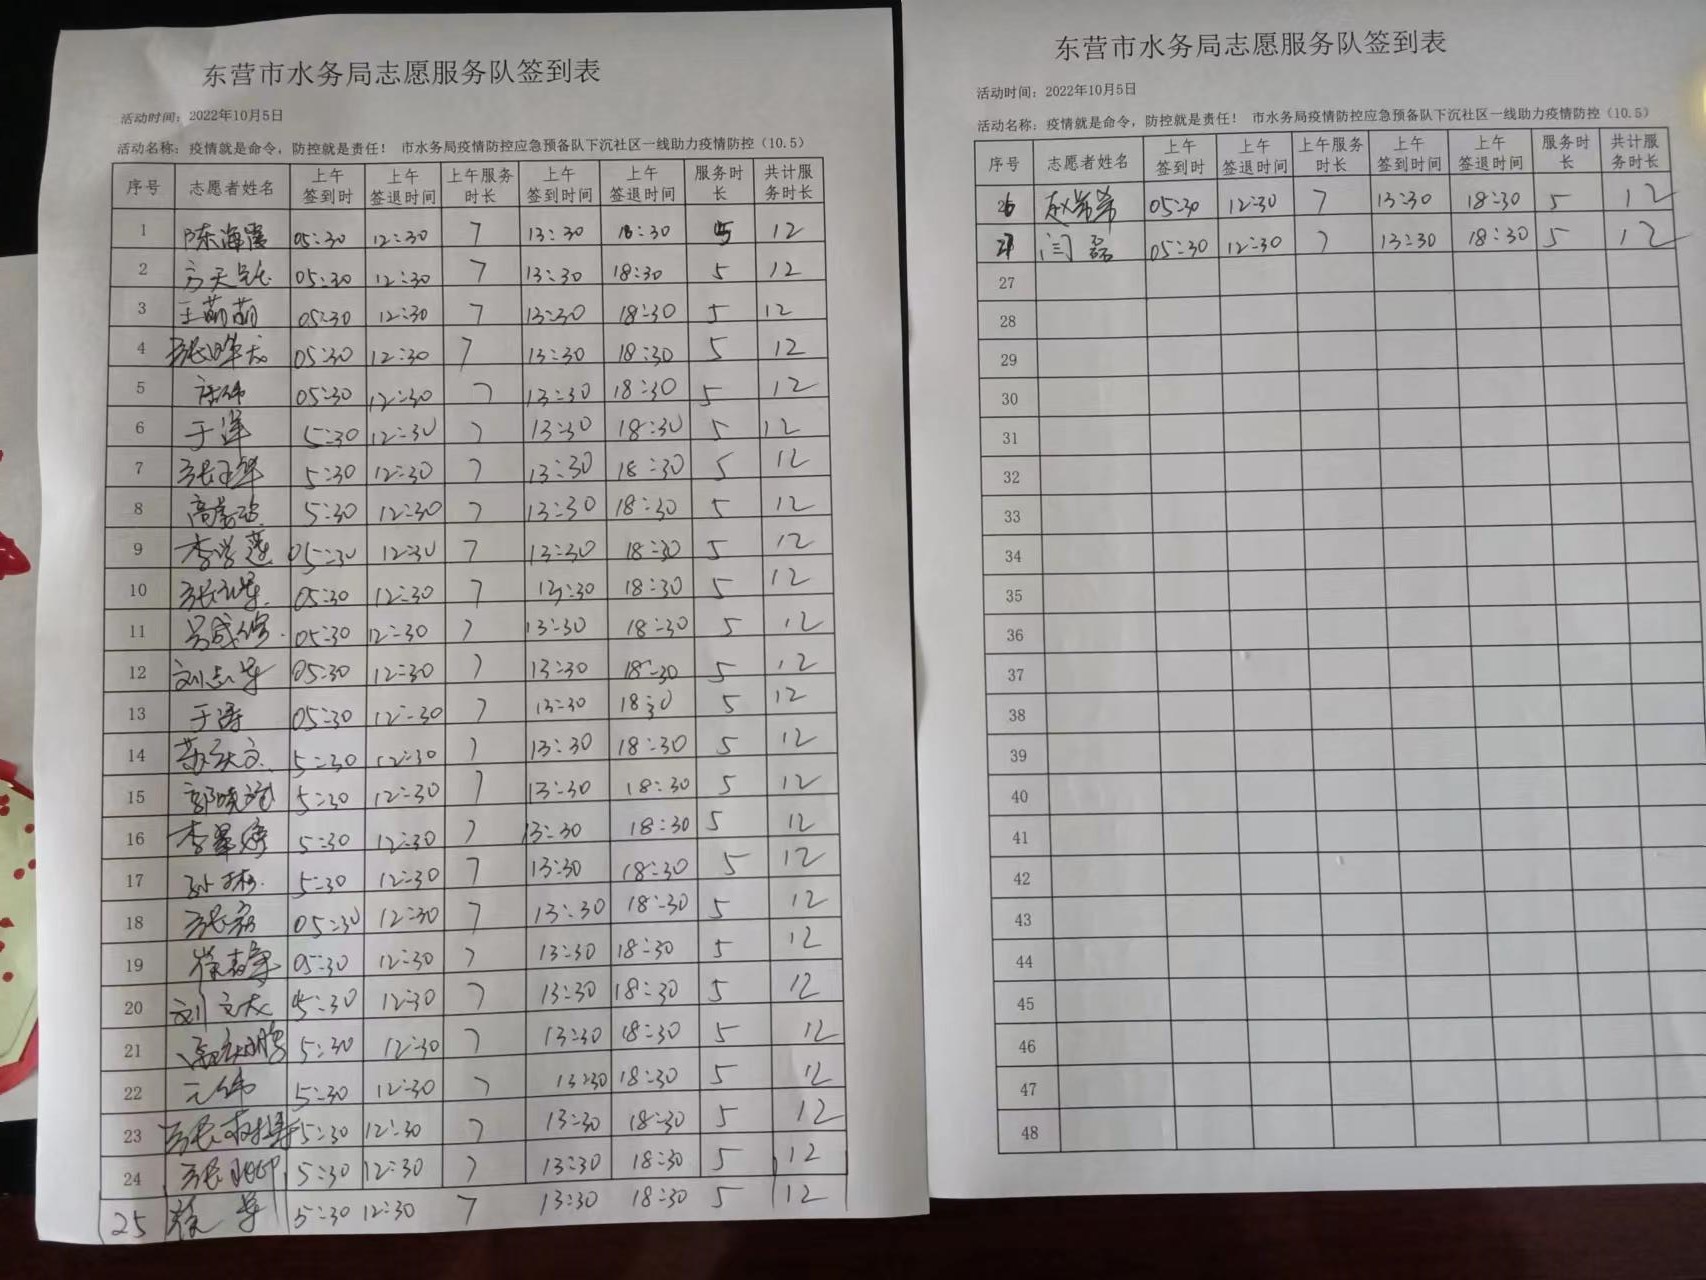 东营市水务局志愿服务队签到表
活动时间：2022年10月5日
活动名称：疫情就是命令，防控就是责任！ 市水务局疫情防控应急预备队下沉社区一线助力疫情防控（10.5）
序号 志愿者姓名 上午签到时 上午签退时间 上午服务时长 上午签到时间 上午签退时间 服务时长 共计服务时长
1 陈海霞 05:30 12:30 7 13:30 18:30 5 12
2 05:30 12:30 7 13:30 18:30 5 12
3 王萌萌 05:30 12:30 7 13:30 18:30 5 12
4 05:30 12:30 7 13:30 18:30 5 12
5 05:30 12:30 7 13:30 18:30 5 12
6 于洋 5:30 12:30 7 13:30 18:30 5 12
7 5:30 12:30 7 13:30 18:30 5 12
8 5:30 12:30 7 13:30 18:30 5 12
9 李学莲 05:30 12:30 7 13:30 18:30 5 12
10 05:30 12:30 7 13:30 18:30 5 12
11 05:30 12:30 7 13:30 18:30 5 12
12 05:30 12:30 7 13:30 18:30 5 12
13 于涛 05:30 12:30 7 13:30 18:30 5 12
14 5:30 12:30 7 13:30 18:30 5 12
15 5:30 12:30 7 13:30 18:30 5 12
16 5:30 12:30 7 13:30 18:30 5 12
17 5:30 12:30 7 13:30 18:30 5 12
18 05:30 12:30 7 13:30 18:30 5 12
19 05:30 12:30 7 13:30 18:30 5 12
20 5:30 12:30 7 13:30 18:30 5 12
21 5:30 12:30 7 13:30 18:30 5 12
22 5:30 12:30 7 13:30 18:30 5 12
23 5:30 12:30 7 13:30 18:30 5 12
24 5:30 12:30 7 13:30 18:30 5 12
25 5:30 12:30 7 13:30 18:30 5 12
东营市水务局志愿服务队签到表
活动时间：2022年10月5日
活动名称：疫情就是命令，防控就是责任！ 市水务局疫情防控应急预备队下沉社区一线助力疫情防控（10.5）
序号 志愿者姓名 上午签到时 上午签退时间 上午服务时长 上午签到时间 上午签退时间 服务时长 共计服务时长
26 05:30 12:30 7 13:30 18:30 5 12
27 闫磊 05:30 12:30 7 13:30 18:30 5 12
27
28
29
30
31
32
33
34
35
36
37
38
39
40
41
42
43
44
45
46
47
48